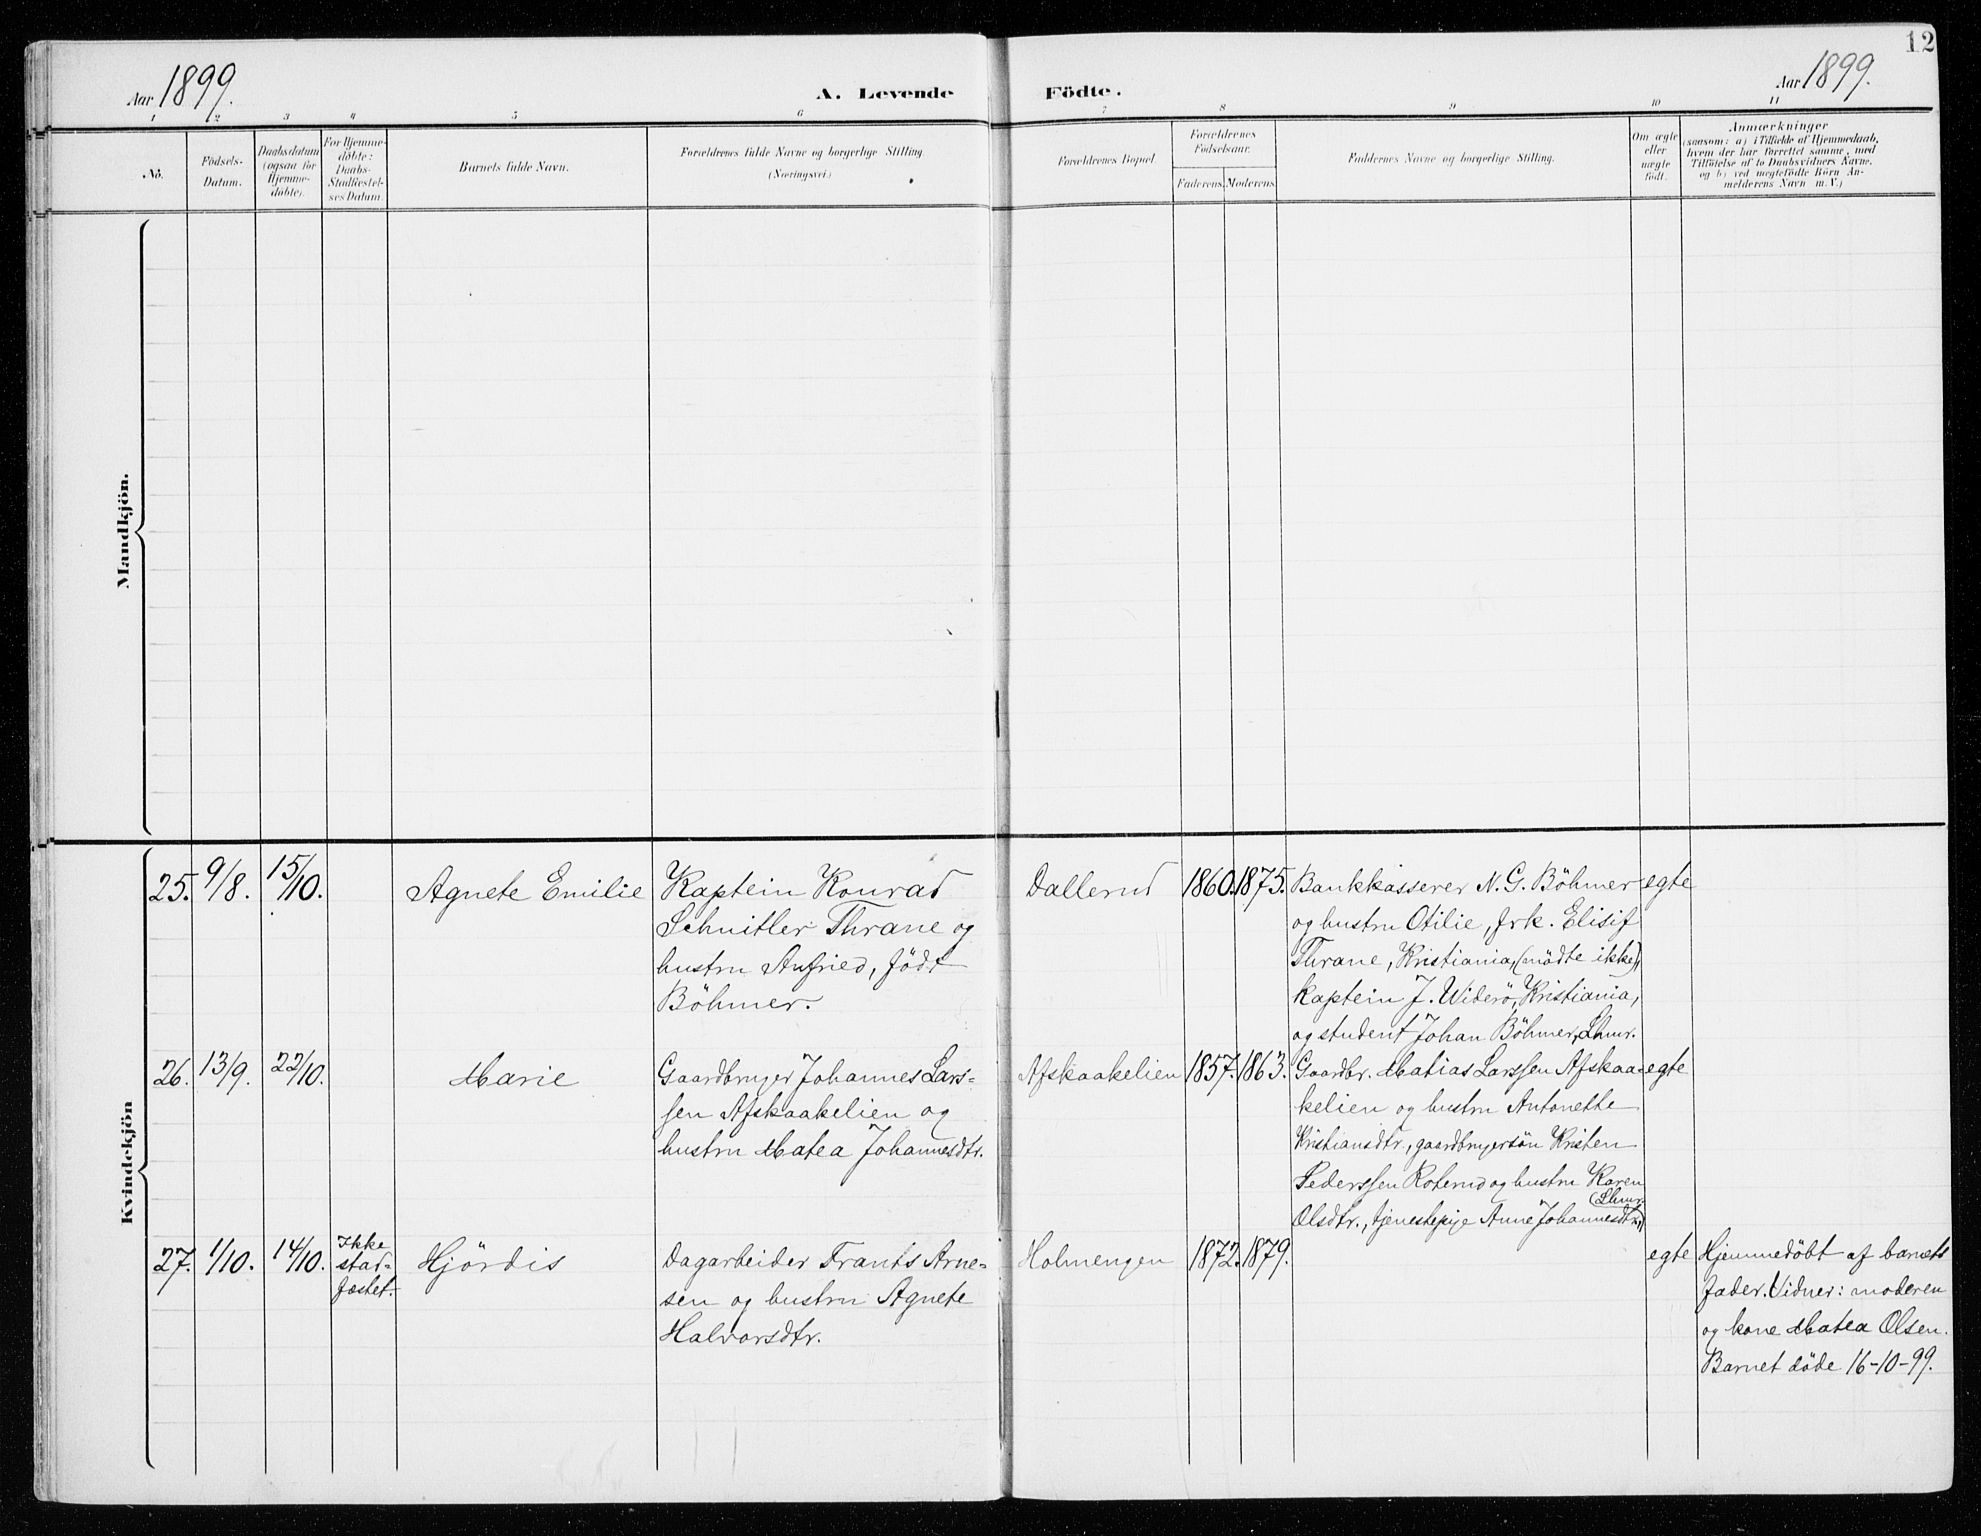 12
Aar 1899.
A. Levende Födte.
Aar 1899.
1 2 3 4 5 6 7 8 9 10 11
No.
Födsels-
Datum.
Daabsdatum
(ogsaa for
Hjemme-
döbte).
For Hjemme-
döbte:
Daabs-
Stadfæstel-
ses Datum.
Barnets fulde Navn.
Forældrenes fulde Navne og borgerlige Stilling
(Næringsvei.)
Forældrenes Bopæl.
Forældrenes
Födselsaar.
Faderens. Moderens.
Faddernes Navne og borgerlige Stilling.
Om ægte
eller
uægte
födt.
Anmærkninger
(saasom: a) i Tilfælde af Hjemmedaab,
hvem der har forrettet samme, med
Tilföielse af to Daabsvidners Navne,
og b) ved uægtefödte Börn An-
melderens Navn m. V.)
Mandkjön.
Kvindekjön
25. 9/8. 15/10.
Agnete Emilie
Kaptein Konrad
Schnitler Thrane og
hustru Anfried, födt
Böhmer.
Dallerud
1860. 1875.
Bankkasserer N. G. Böhmer
og hustru Otilie, frk. Elisif
Thrane, Kristiania, (mödte ikke),
kaptein J. Widerö, Kristiania,
og student Johan Böhmer, Lhmr.
egte
26. 13/9. 22/10.
Marie
Gaardbruger Johannes Lars-
sen Afskaakelien og
hustru Matea Johannesdtr.
Afskaakelien
1857. 1863.
Gaardbr. Matias Larssen Afskaa-
kelien og hustru Antonette
Kristiansdtr., gaardbrugersön Kristen
Pederssen Roterud og hustru Karen
Olsdtr., tjenestepige Anne Johannesdtr.,
(Lhmr.)
egte
27. 1/10. 14/10.
Ikke
stad-
fæstet.
Hjördis
Dagarbeider Frants Arne-
sen og hustru Agnete
Halvorsdtr.
Holmengen
1872. 1879.
egte
Hjemmedöbt af barnets
fader. Vidner: moderen
og kone Matea Olsen.
Barnet döde 16-10-99.